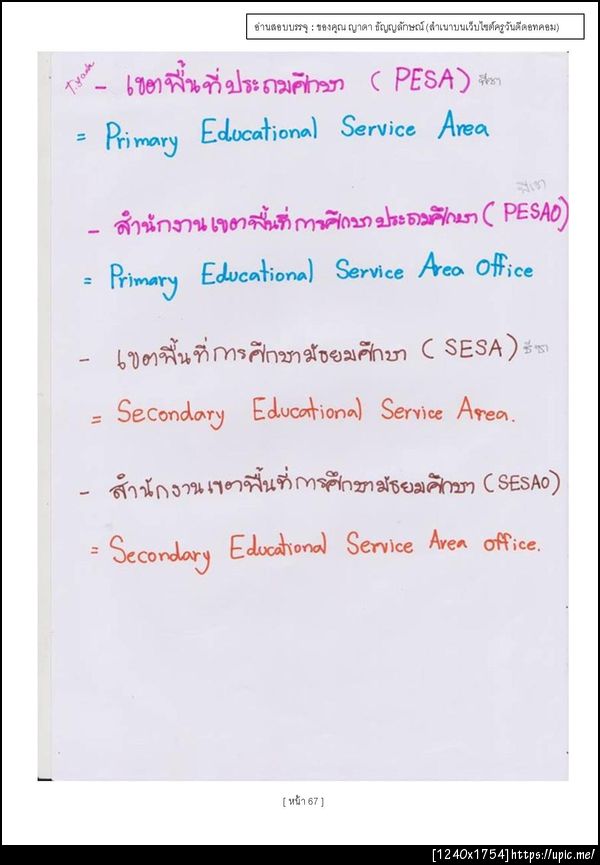 อ่านสอบบรรจุ : ของคุณ ญาดา ธัญญลักษณ์ (สำเนาบนเว็บไซต์ครูวันดีดอทคอม)
- เขตพื้นที่ประถมศึกษา (PESA) พีซา
= Primary Educational Service Area
- สำนักงานเขตพื้นที่การศึกษาประถมศึกษา (PESAO)
= Primary Educational Service Area Office
- เขตพื้นที่การศึกษามัธยมศึกษา (SESA) ซีซา
= Secondary Educational Service Area.
- สำนักงานเขตพื้นที่การศึกษามัธยมศึกษา (SESAO)
= Secondary Educational Service Area office.
[ หน้า 67 ]
[1240x1754]https://upic.me/